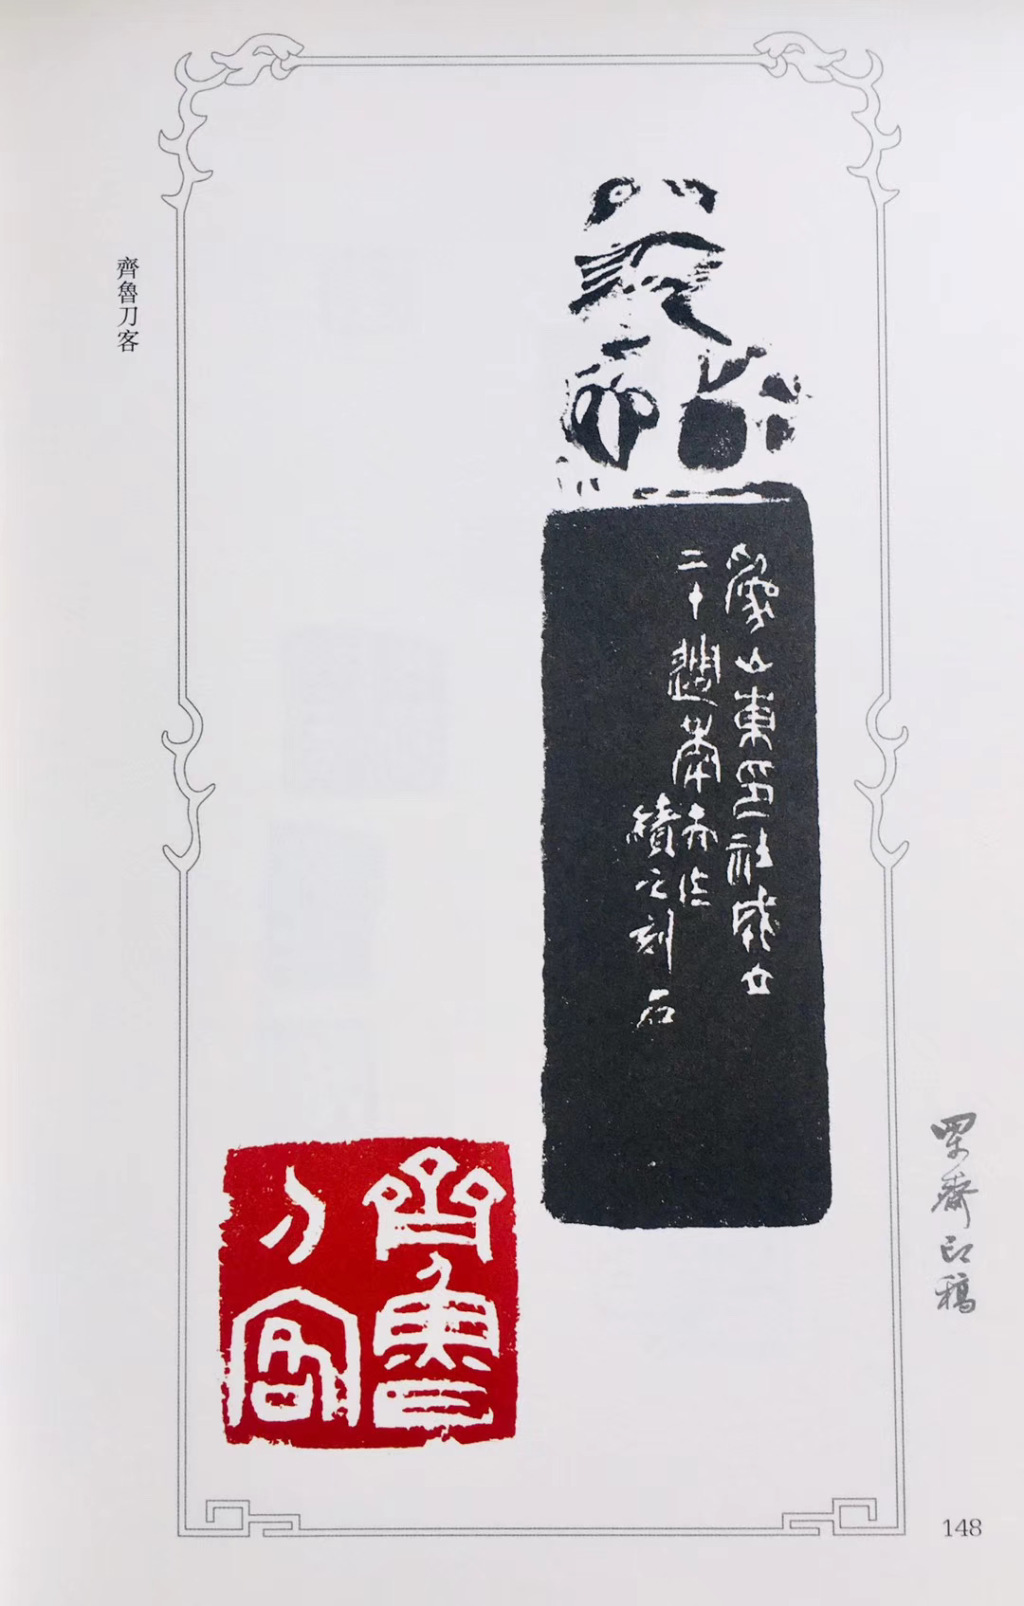 齊魯刀客
爲山東印社成立
二十週年而作
續之刻石
齊魯
刀客
齋印稿
148